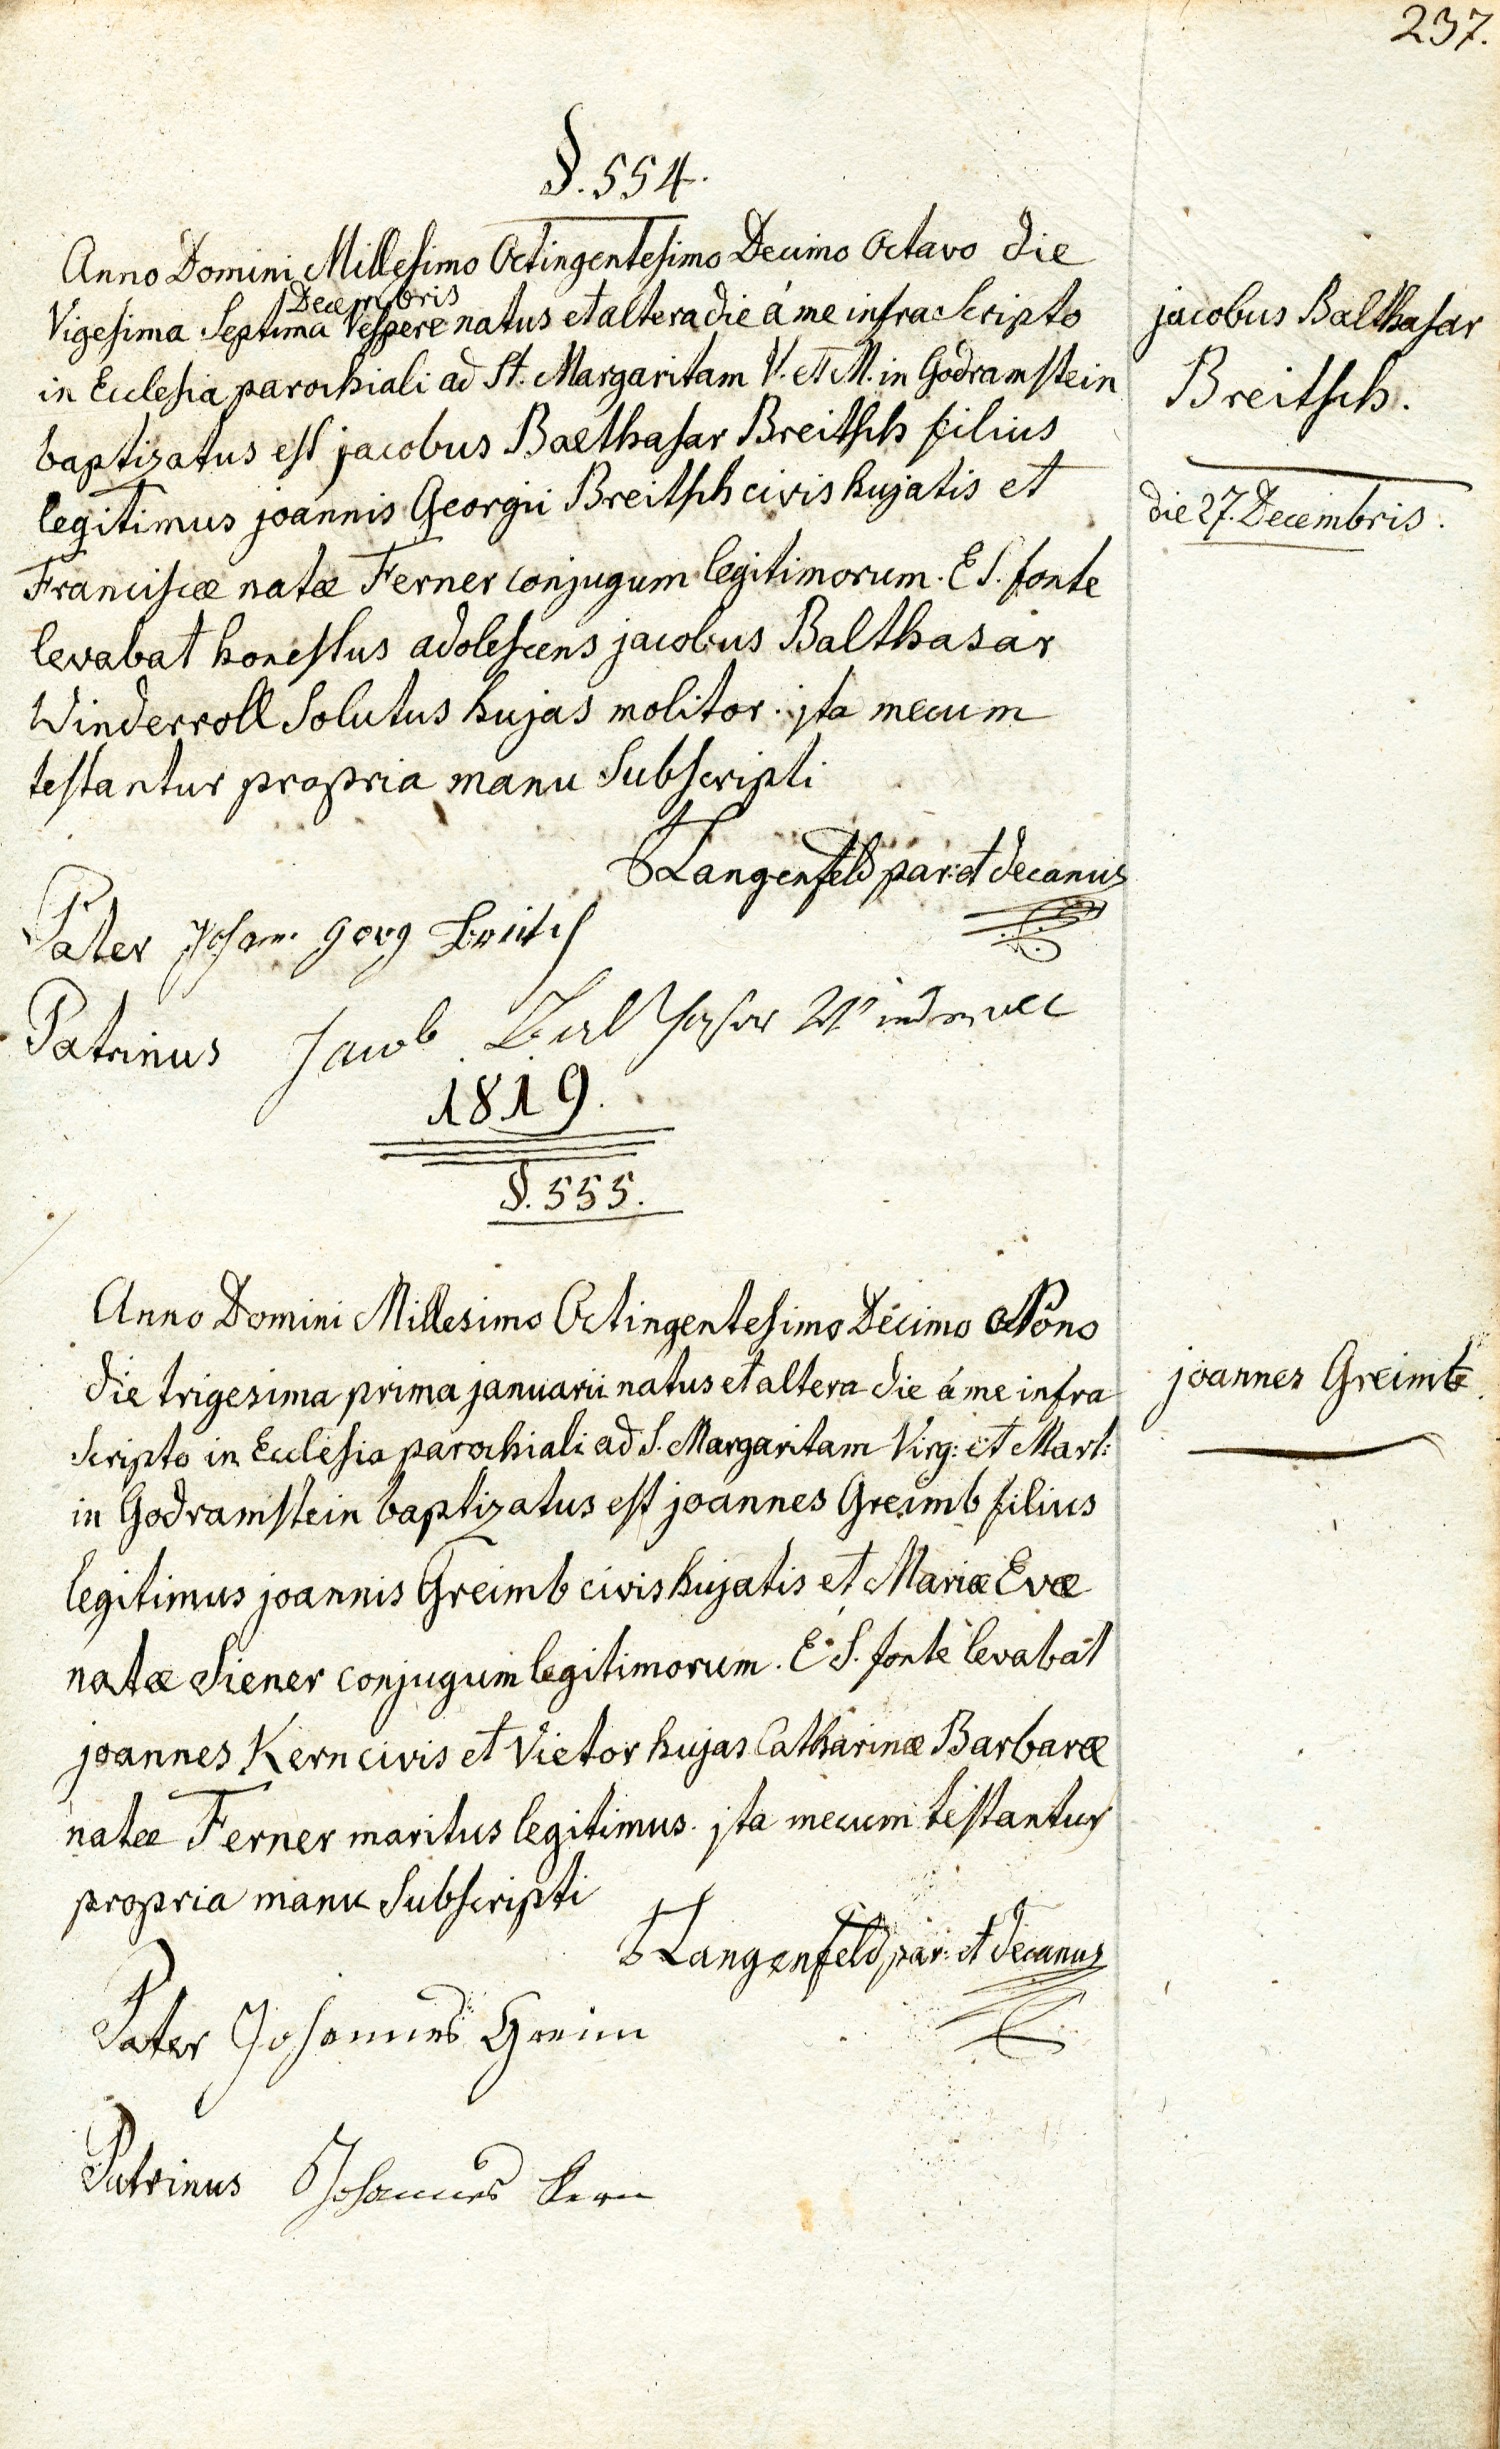 237.
§. 554.
Anno Domini Millesimo Octingentesimo Decimo Octavo die
Decembris
Vigesima Septima Vespere natus et altera die á me infra Scripto
in Ecclesia parochiali ad St. Margaritam V. et M. in Godramstein
baptizatus est jacobus Balthasar Breitsch filius
legitimus joannis Georgii Breitsch civis hujatis et
Franciscæ natæ Ferner conjugum legitimorum. E S. fonte
levabat honestus adolescens jacobus Balthasar
Winderroll Solutus hujas molitor. jta mecum
testantur propria manu Subscripti
Langenfeld par: et decanus
Pater Johann Georg Breitsch
Patrinus Jacob Balthasar
jacobus Balthasar
Breitsch.
die 27. Decembris.
1819.
§. 555.
Anno Domini Millesimo Octingentesimo Decimo Nono
die trigesima prima januarii natus et altera die á me infra
scripto in Ecclesia parochiali ad S. Margaritam Virg: et Mart:
in Godramstein baptizatus est joannes Greimb filius
legitimus joannis Greimb civis hujatis et Mariæ Evæ
natæ Siener conjugum legitimorum. E S. fonte levabat
joannes Kern civis et Vietor hujas Catharinæ Barbaræ
natæ Ferner maritus legitimus. jta mecum testantur
propria manu Subscripti
Langenfeld par: et decanus
Pater Johannes Greim
Patrinus Johannes Kern
joannes Greimb